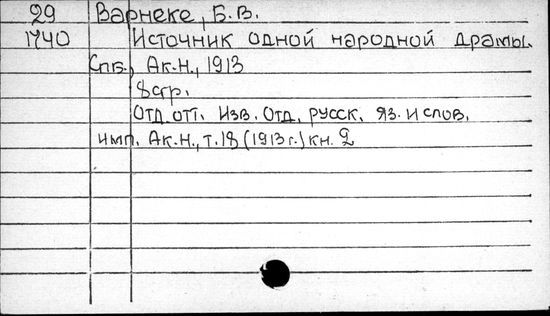 29 Варнеке, Б.В.
1740 Источник одной народной драмы.
Спб., Ак.Н., 1913
8стр.
Отд. отт. Изв. Отд. русск. яз. и слов.
имп. Ак.Н., т.18 (1913 г.) кн. 2